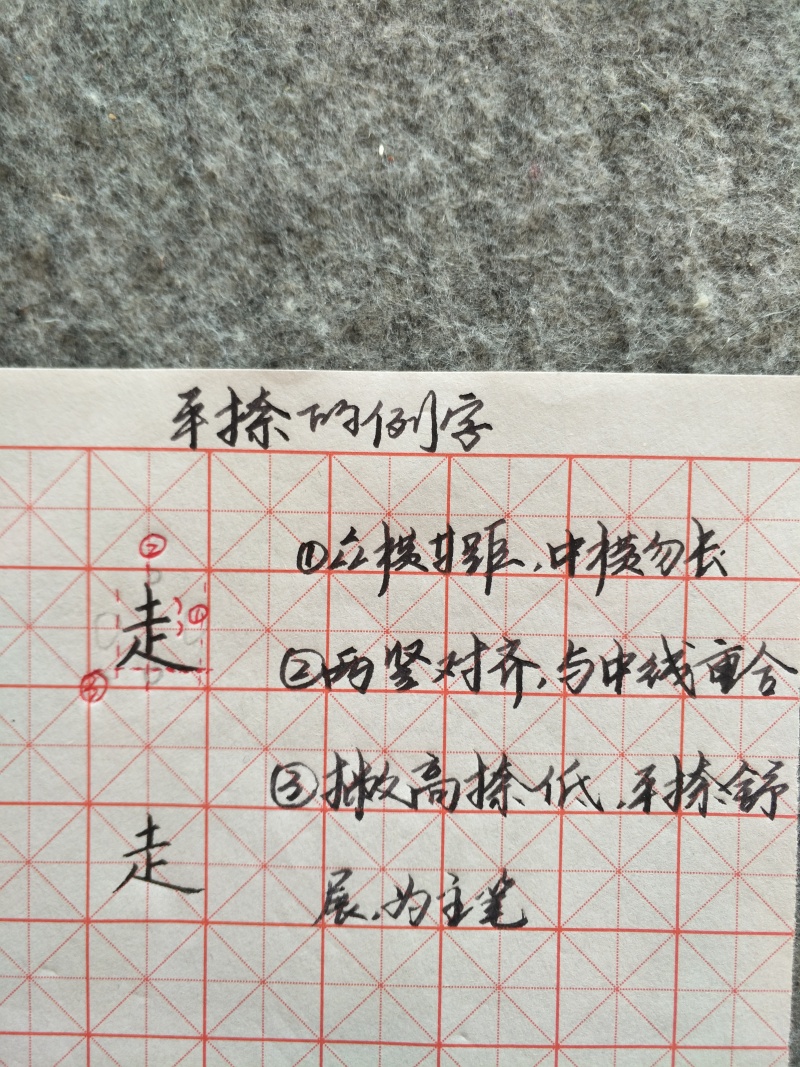 平捺的例字
②
①众横等距，中横勿长
走
①
②两竖对齐，与中线重合
③
③撇高捺低，平捺舒
走
展，为主笔